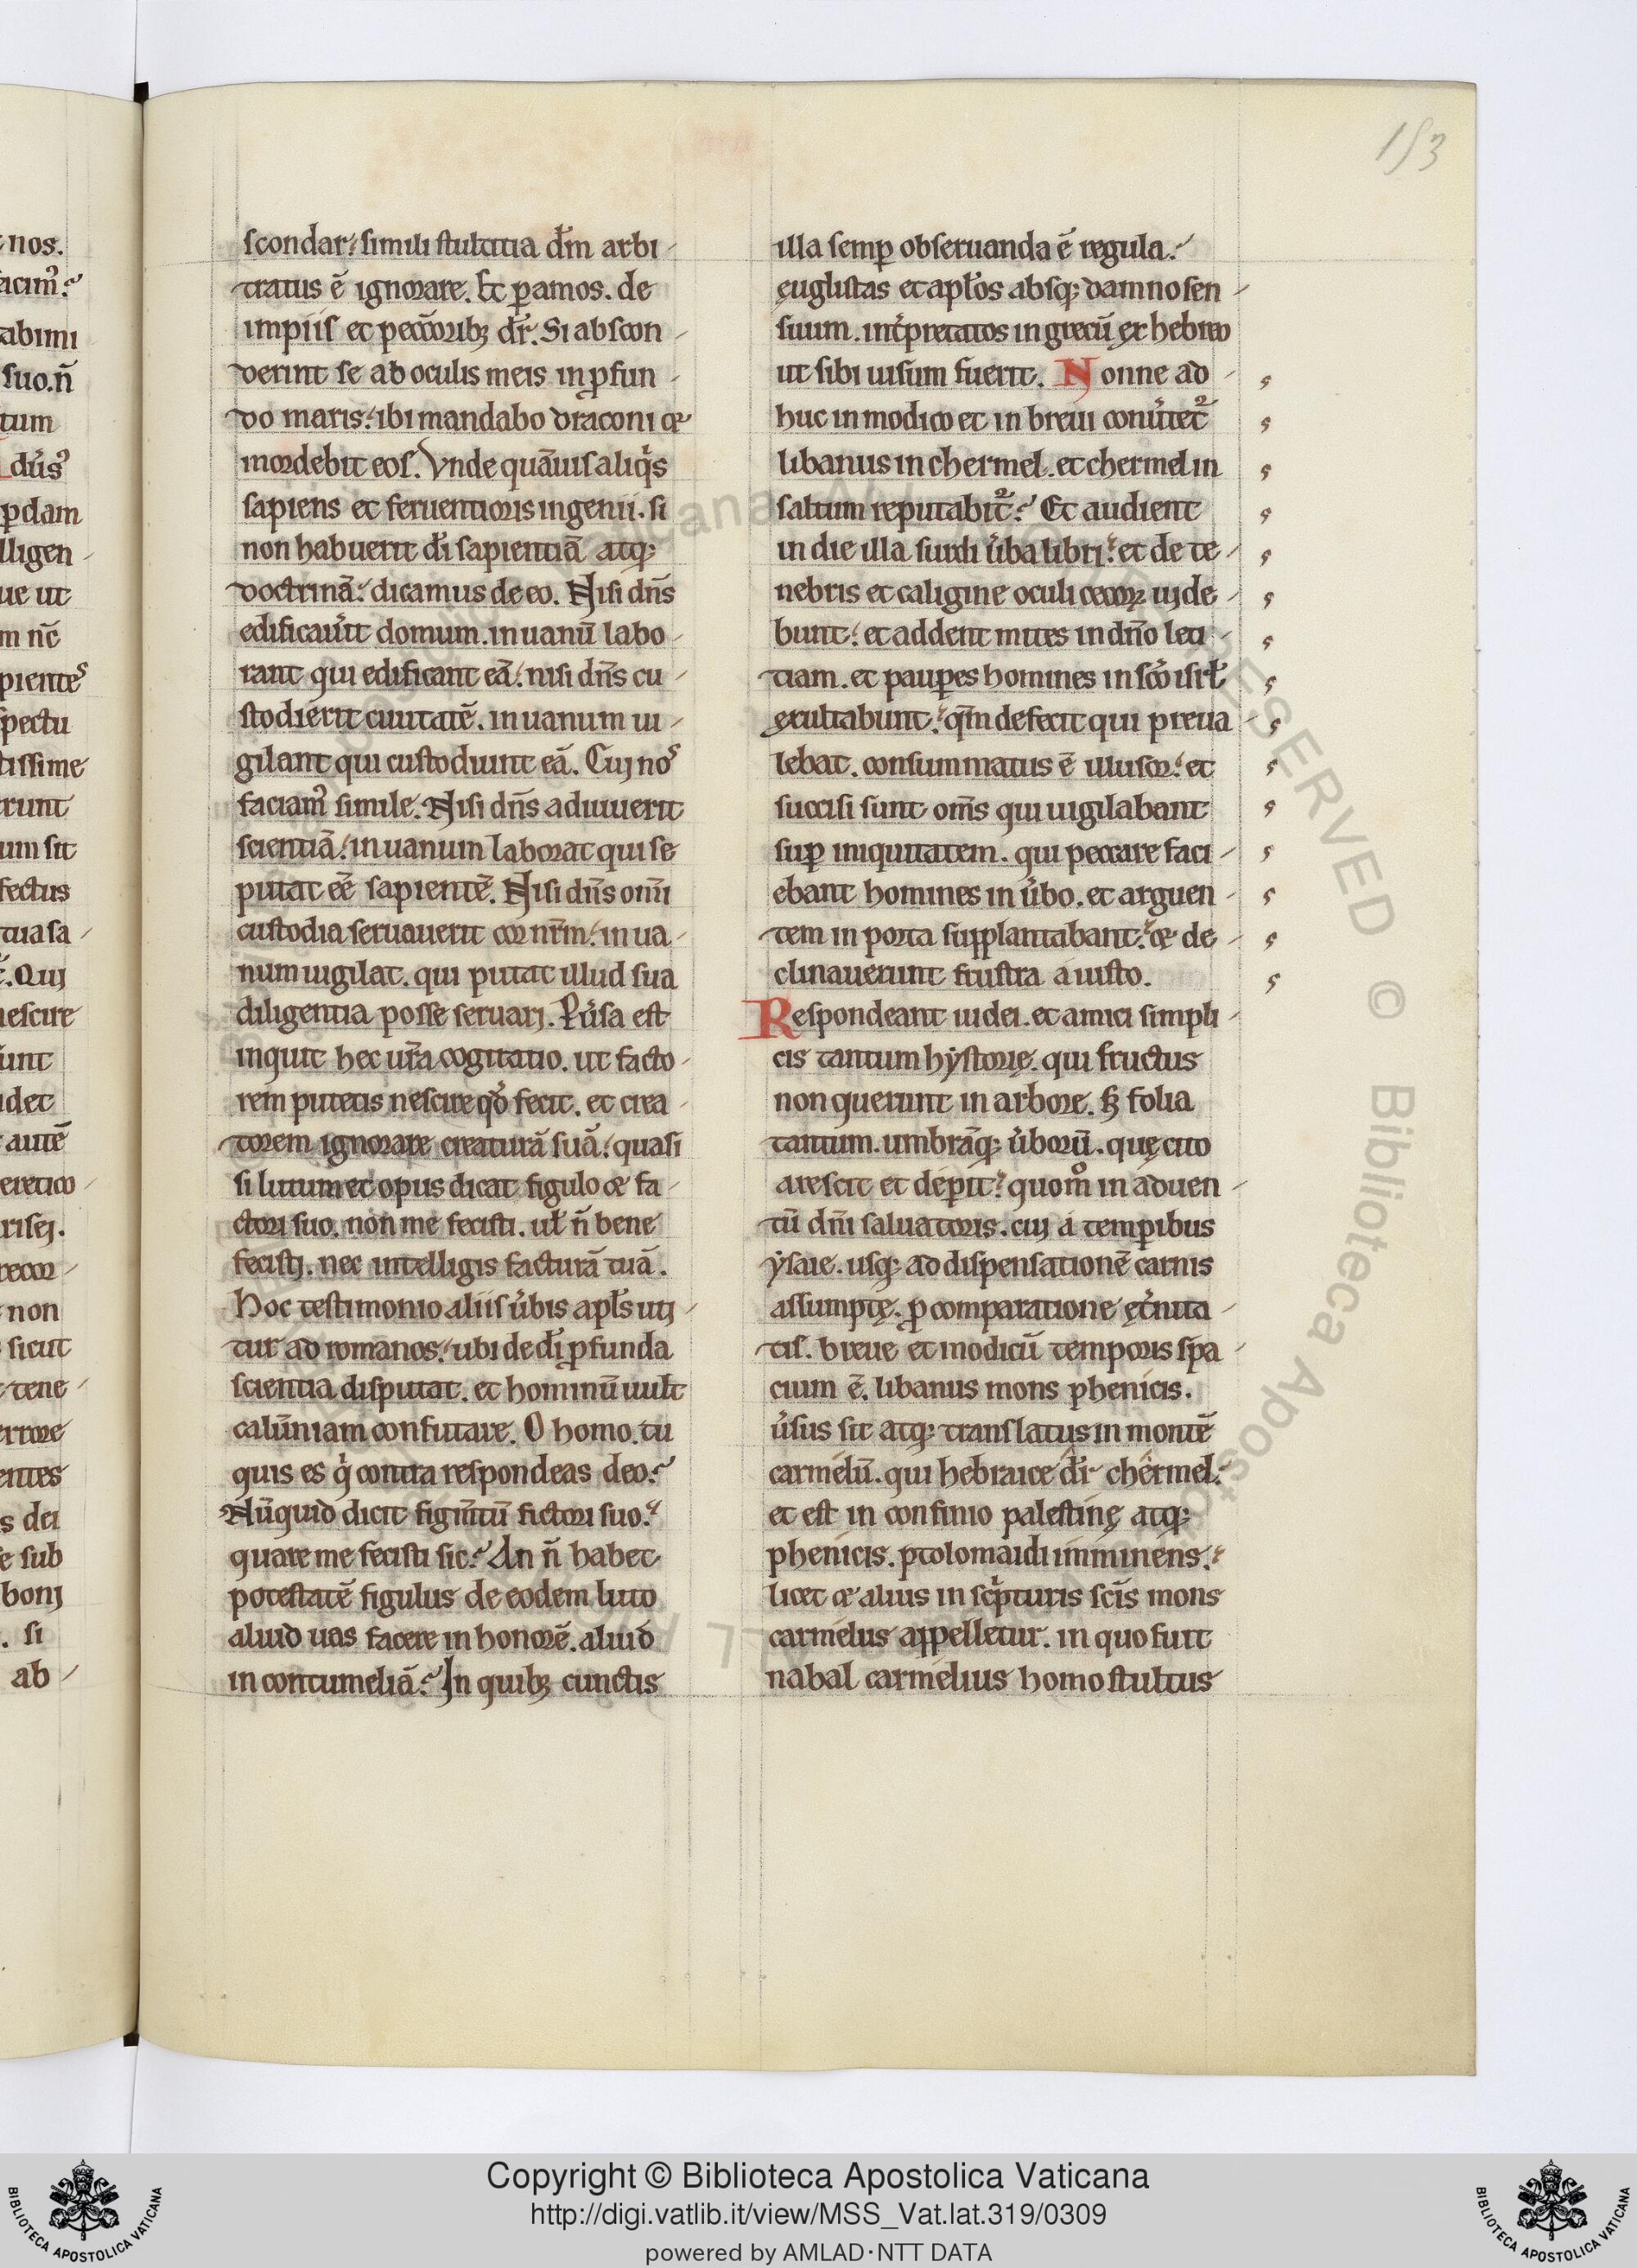 153
scondar; simili stultitia dm̄ arbi-
tratus ē ignorare. Et ꝑ amos. de
impiis et peccōribꝫ dr̄. Si abscon-
derint se ab oculis meis in ꝓfun-
do maris; ibi mandabo draconi &
mordebit eos. Vnde quāuis aliqͥs
sapiens et feruentioris ingenii. si
non habuerit di̅ sapientiā atqꝫ
doctrinā; dicamus de eo. Nisi dn̄s
edificau̓it domum. in uanū labo-
rant qui edificant eā; nisi dn̄s cu-
stodierit ciuitatē. in uanum ui-
gilant qui custodiunt eā. Cuj nos
faciamꝰ simile. Nisi dn̄s adiuuerit
scientiā; in uanum laborat qui se
putat eē sapientē. Nisi dn̄s omi̅
custodia seruauerit cor nr̄m; in ua-
num uigilat. qui putat illud sua
diligentia posse seruarj. Pu̓sa est
inquit hec ur̄a cogitatio. ut facto-
rem putetis nescire qͦd fecit. et crea-
torem ignorare creaturā suā; quasi
si lutum et opus dicat figulo & fa-
ctori suo. non me fecisti. ul̄ n̄ bene
fecistj. nec intelligis facturā tuā.
Hoc testimonio aliis u̓bis apl̄s utj-
tur ad romanos; ubi de di̅ ꝓfunda
scientia disputat. et hominū uult
calūniam confutare. O homo. tu
quis es qͥ contra respondeas deo?
Nūquid dicit figm̄tū fictori suo;
quare me fecisti sic? An n̄ habet
potestatē figulus de eodem luto
aliud uas facere in honorē. aliud
in contumeliā? In quibꝫ cunctis
illa semꝑ obseruanda ē regula;
ęuglistas et apl̄os absqꝫ damno sen-
suum. int̓pretatos in grecū ex hebreo
ut sibi uisum fuerit. Nonne ad-
huc in modico et in breui conu̓tet᷑
libanus in chermel. et chermel in
saltum reputabit᷑? Et audient
in die illa surdi u̓ba libri; et de te-
nebris et caligine oculi cecoꝝ uide-
bunt; et addent mites in dn̄o leti-
tiam. et pauꝑes homines in scō isrl̄
exultabunt; qm̄ defecit qui p̄reua-
lebat. consummatus ē illusor; et
succisi sunt om̄s qui uigilabant
suꝑ iniquitatem. qui peccare faci-
ebant homines in u̓bo. et arguen-
tem in porta supplantabant; & de-
clinauerunt frustra a iusto.
Respondeant iudei. et amici simpli-
cis tantum hystorię. qui fructus
non querunt in arbore. sꝫ folia
tantum. umbrāqꝫ u̓borū. quę cito
arescit et deꝑit; quomͦ in aduen-
tū dn̄i saluatoris. cuj a temꝑibus
ysaie. usqꝫ ad dispensationē carnis
assumptę. ꝓ comparatione ęt̓nita-
tis. breue et modicū temporis spa-
cium ē. libanus mons phenicis.
u̓sus sit atqꝫ translatus in montē
carmelū. qui hebraice dr̄ chermel;
et est in confinio palestinę atqꝫ
phenicis. ptolomaidi imminens;
licet & alius in scͥpturis scīs mons
carmelus appelletur. in quo fuit
nabal carmelius homo stultus
Copyright © Biblioteca Apostolica Vaticana
http://digi.vatlib.it/view/MSS_Vat.lat.319/0309
powered by AMLAD·NTT DATA
BIBLIOTECA APOSTOLICA VATICANA
BIBLIOTECA APOSTOLICA VATICANA